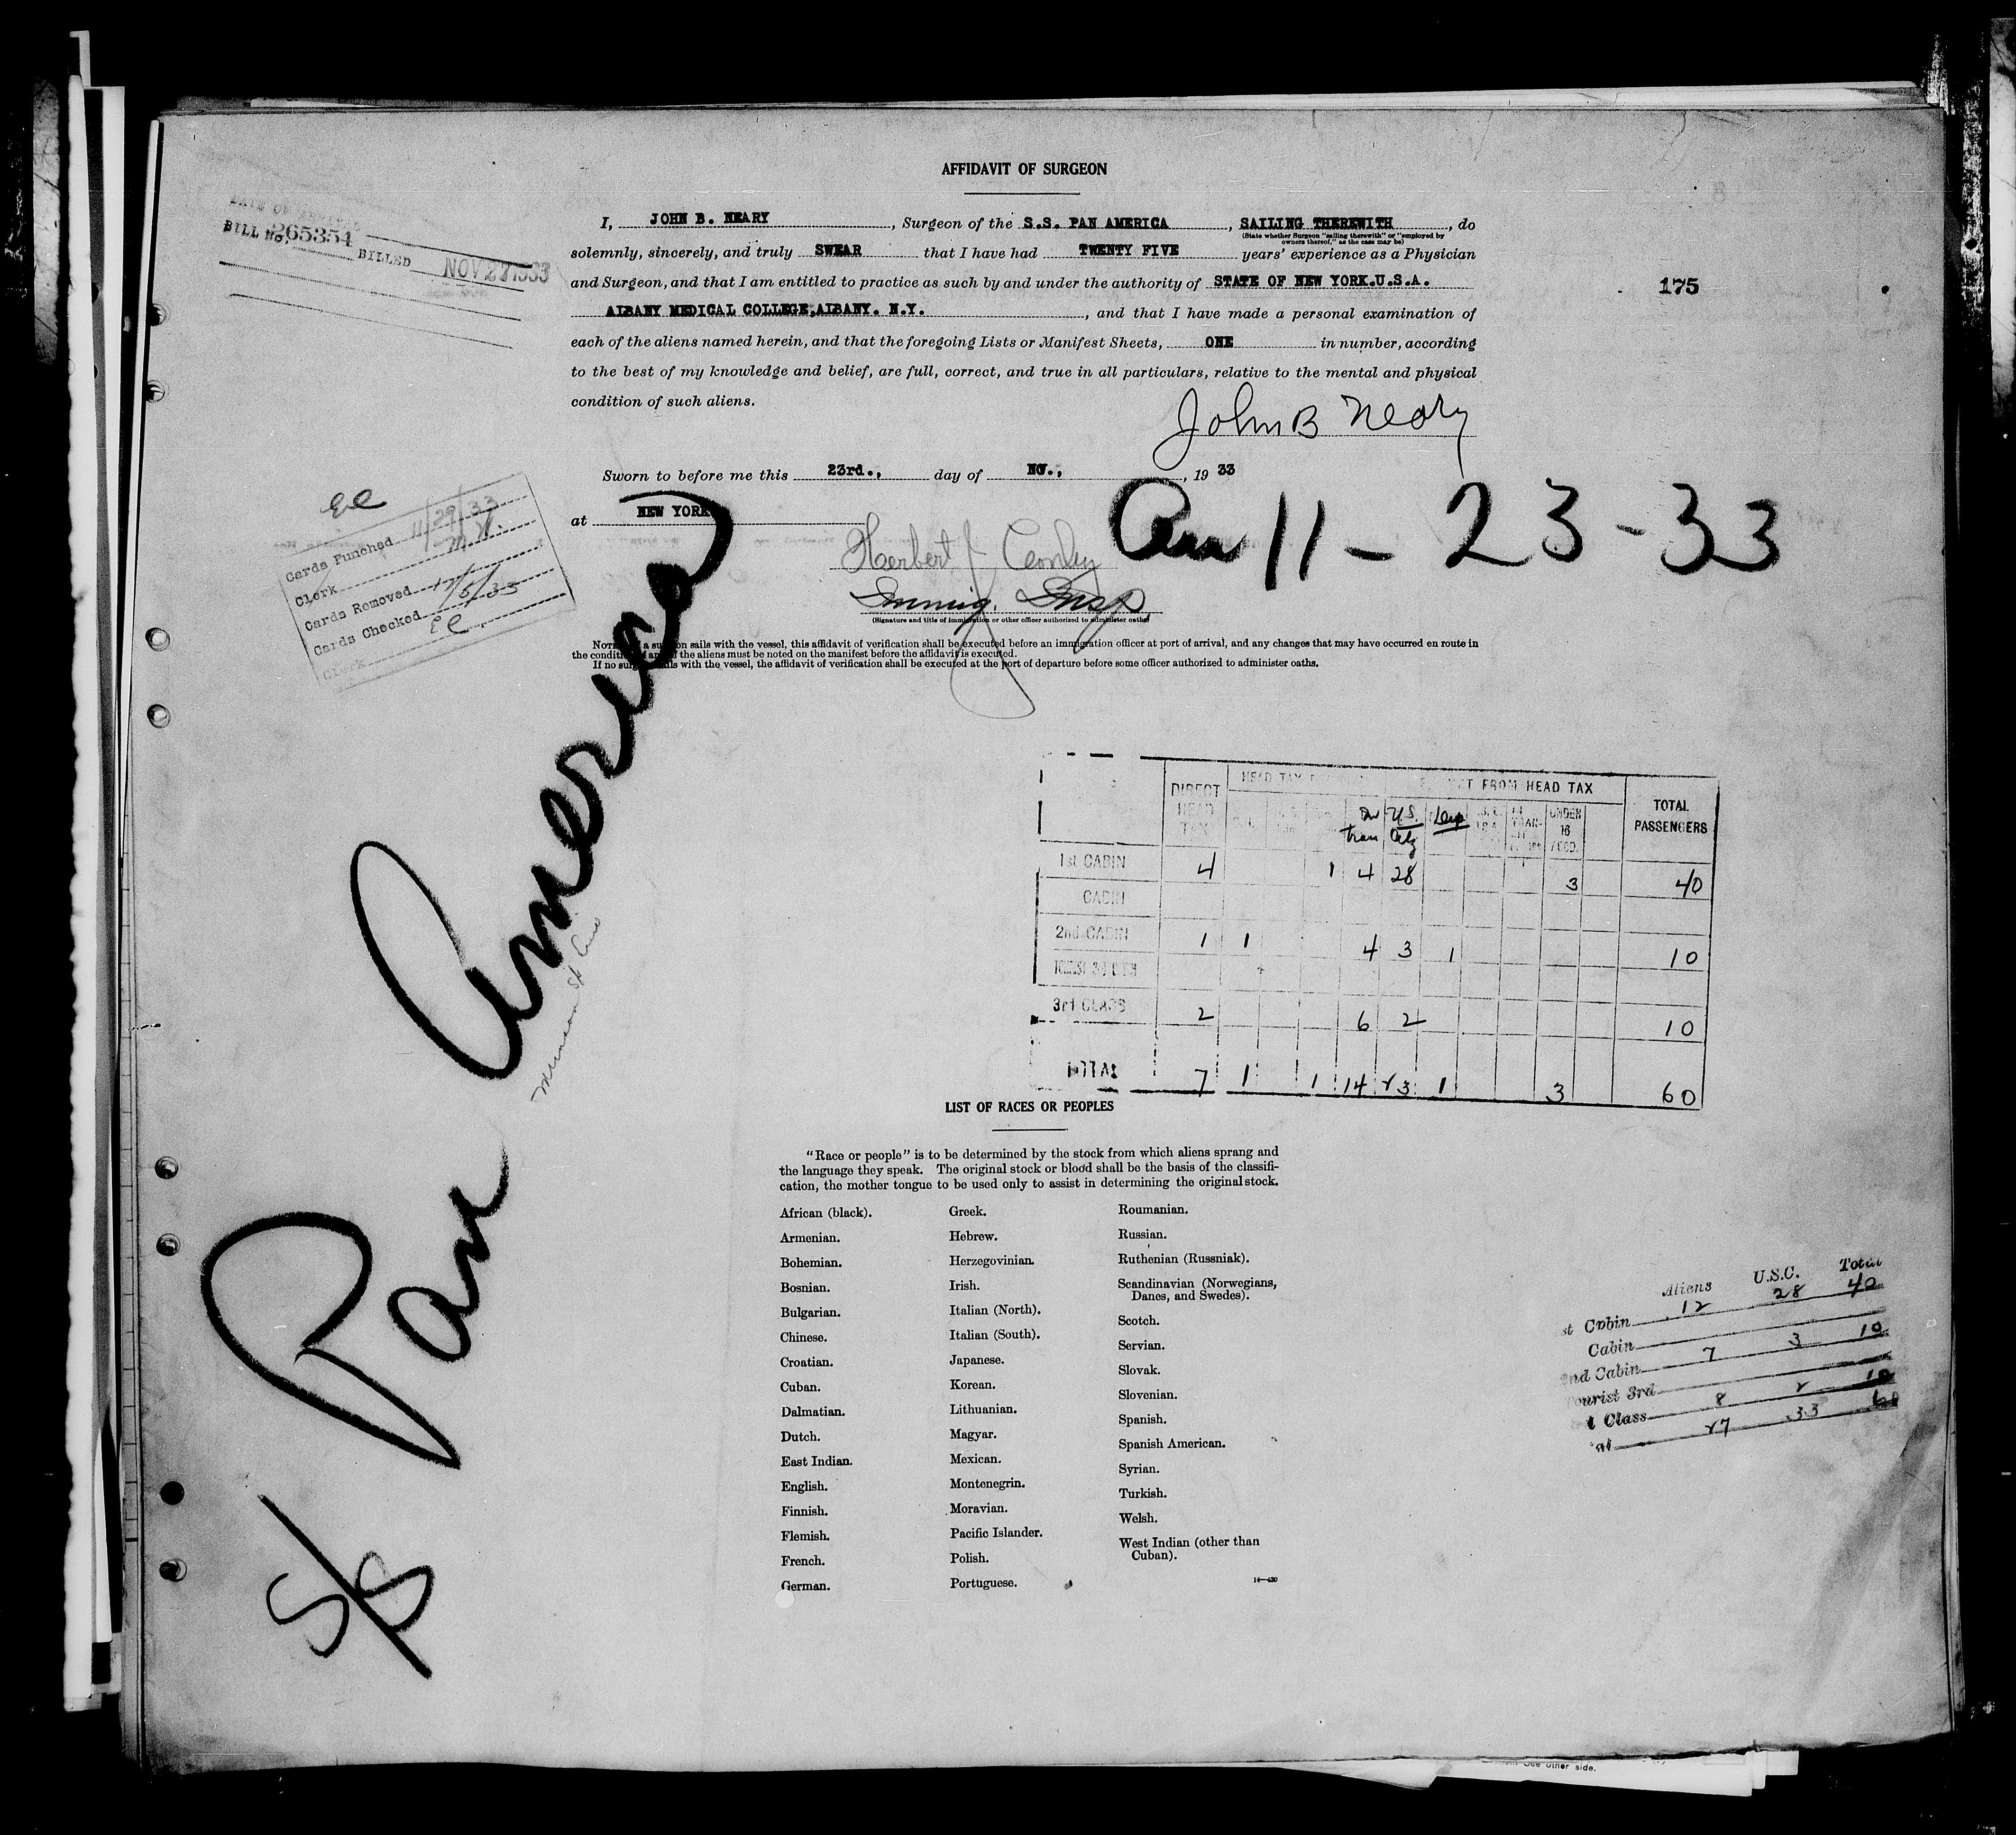 AFFIDAVIT OF SURGEON
I, JOHN B. NEARY, Surgeon of the S.S. PAN AMERICA, SAILING THEREWITH, do
(State whether Surgeon "sailing therewith" or "employed by
owners thereof," as the case may be)
solemnly, sincerely, and truly SWEAR that I have had TWENTY FIVE years' experience as a Physician
and Surgeon, and that I am entitled to practice as such by and under the authority of STATE OF NEW YORK.U.S.A.
ALBANY MEDICAL COLLEGE,ALBANY. N.Y., and that I have made a personal examination of
each of the aliens named herein, and that the foregoing Lists or Manifest Sheets, ONE in number, according
to the best of my knowledge and belief, are full, correct, and true in all particulars, relative to the mental and physical
condition of such aliens.
John B Neary
Sworn to before me this 23rd., day of NOV., 1933
at NEW YORK
Herbert J
Immig. Insp
(Signature and title of immigration or other officer authorized to administer oaths)
Arr 11-23-33
175
BILL No. 265354
BILLED NOV 27 1933
Cards Punched 11/29/33
Clerk
Cards Removed 12/5/33
Cards Checked
Clerk
NOTE a surgeon sails with the vessel, this affidavit of verification shall be executed before an immigration officer at port of arrival, and any changes that may have occurred en route in
the condition of any of the aliens must be noted on the manifest before the affidavit is executed.
If no surgeon sails with the vessel, the affidavit of verification shall be executed at the port of departure before some officer authorized to administer oaths.
S/S Pan America
Munson St Line
DIRECT HEAD TAX
FROM HEAD TAX
TOTAL PASSENGERS
tran U.S.
UNDER 16
1st CABIN 4 1 4 28 3 40
CABIN
2nd CABIN 1 1 4 3 1 10
3rd CLASS 2 6 2 10
TOTAL 7 1 1 14 33 1 3 60
LIST OF RACES OR PEOPLES
"Race or people" is to be determined by the stock from which aliens sprang and
the language they speak. The original stock or blood shall be the basis of the classifi-
cation, the mother tongue to be used only to assist in determining the original stock.
African (black).
Armenian.
Bohemian.
Bosnian.
Bulgarian.
Chinese.
Croatian.
Cuban.
Dalmatian.
Dutch.
East Indian.
English.
Finnish.
Flemish.
French.
German.
Greek.
Hebrew.
Herzegovinian.
Irish.
Italian (North).
Italian (South).
Japanese.
Korean.
Lithuanian.
Magyar.
Mexican.
Montenegrin.
Moravian.
Pacific Islander.
Polish.
Portuguese.
Roumanian.
Russian.
Ruthenian (Russniak).
Scandinavian (Norwegians,
Danes, and Swedes).
Scotch.
Servian.
Slovak.
Slovenian.
Spanish.
Spanish American.
Syrian.
Turkish.
Welsh.
West Indian (other than
Cuban).
Aliens U.S.C. Total
st Cabin 12 28 40
Cabin
2nd Cabin 7 3 10
ourist 3rd
Class 8 2 10
27 33 60
See other side.